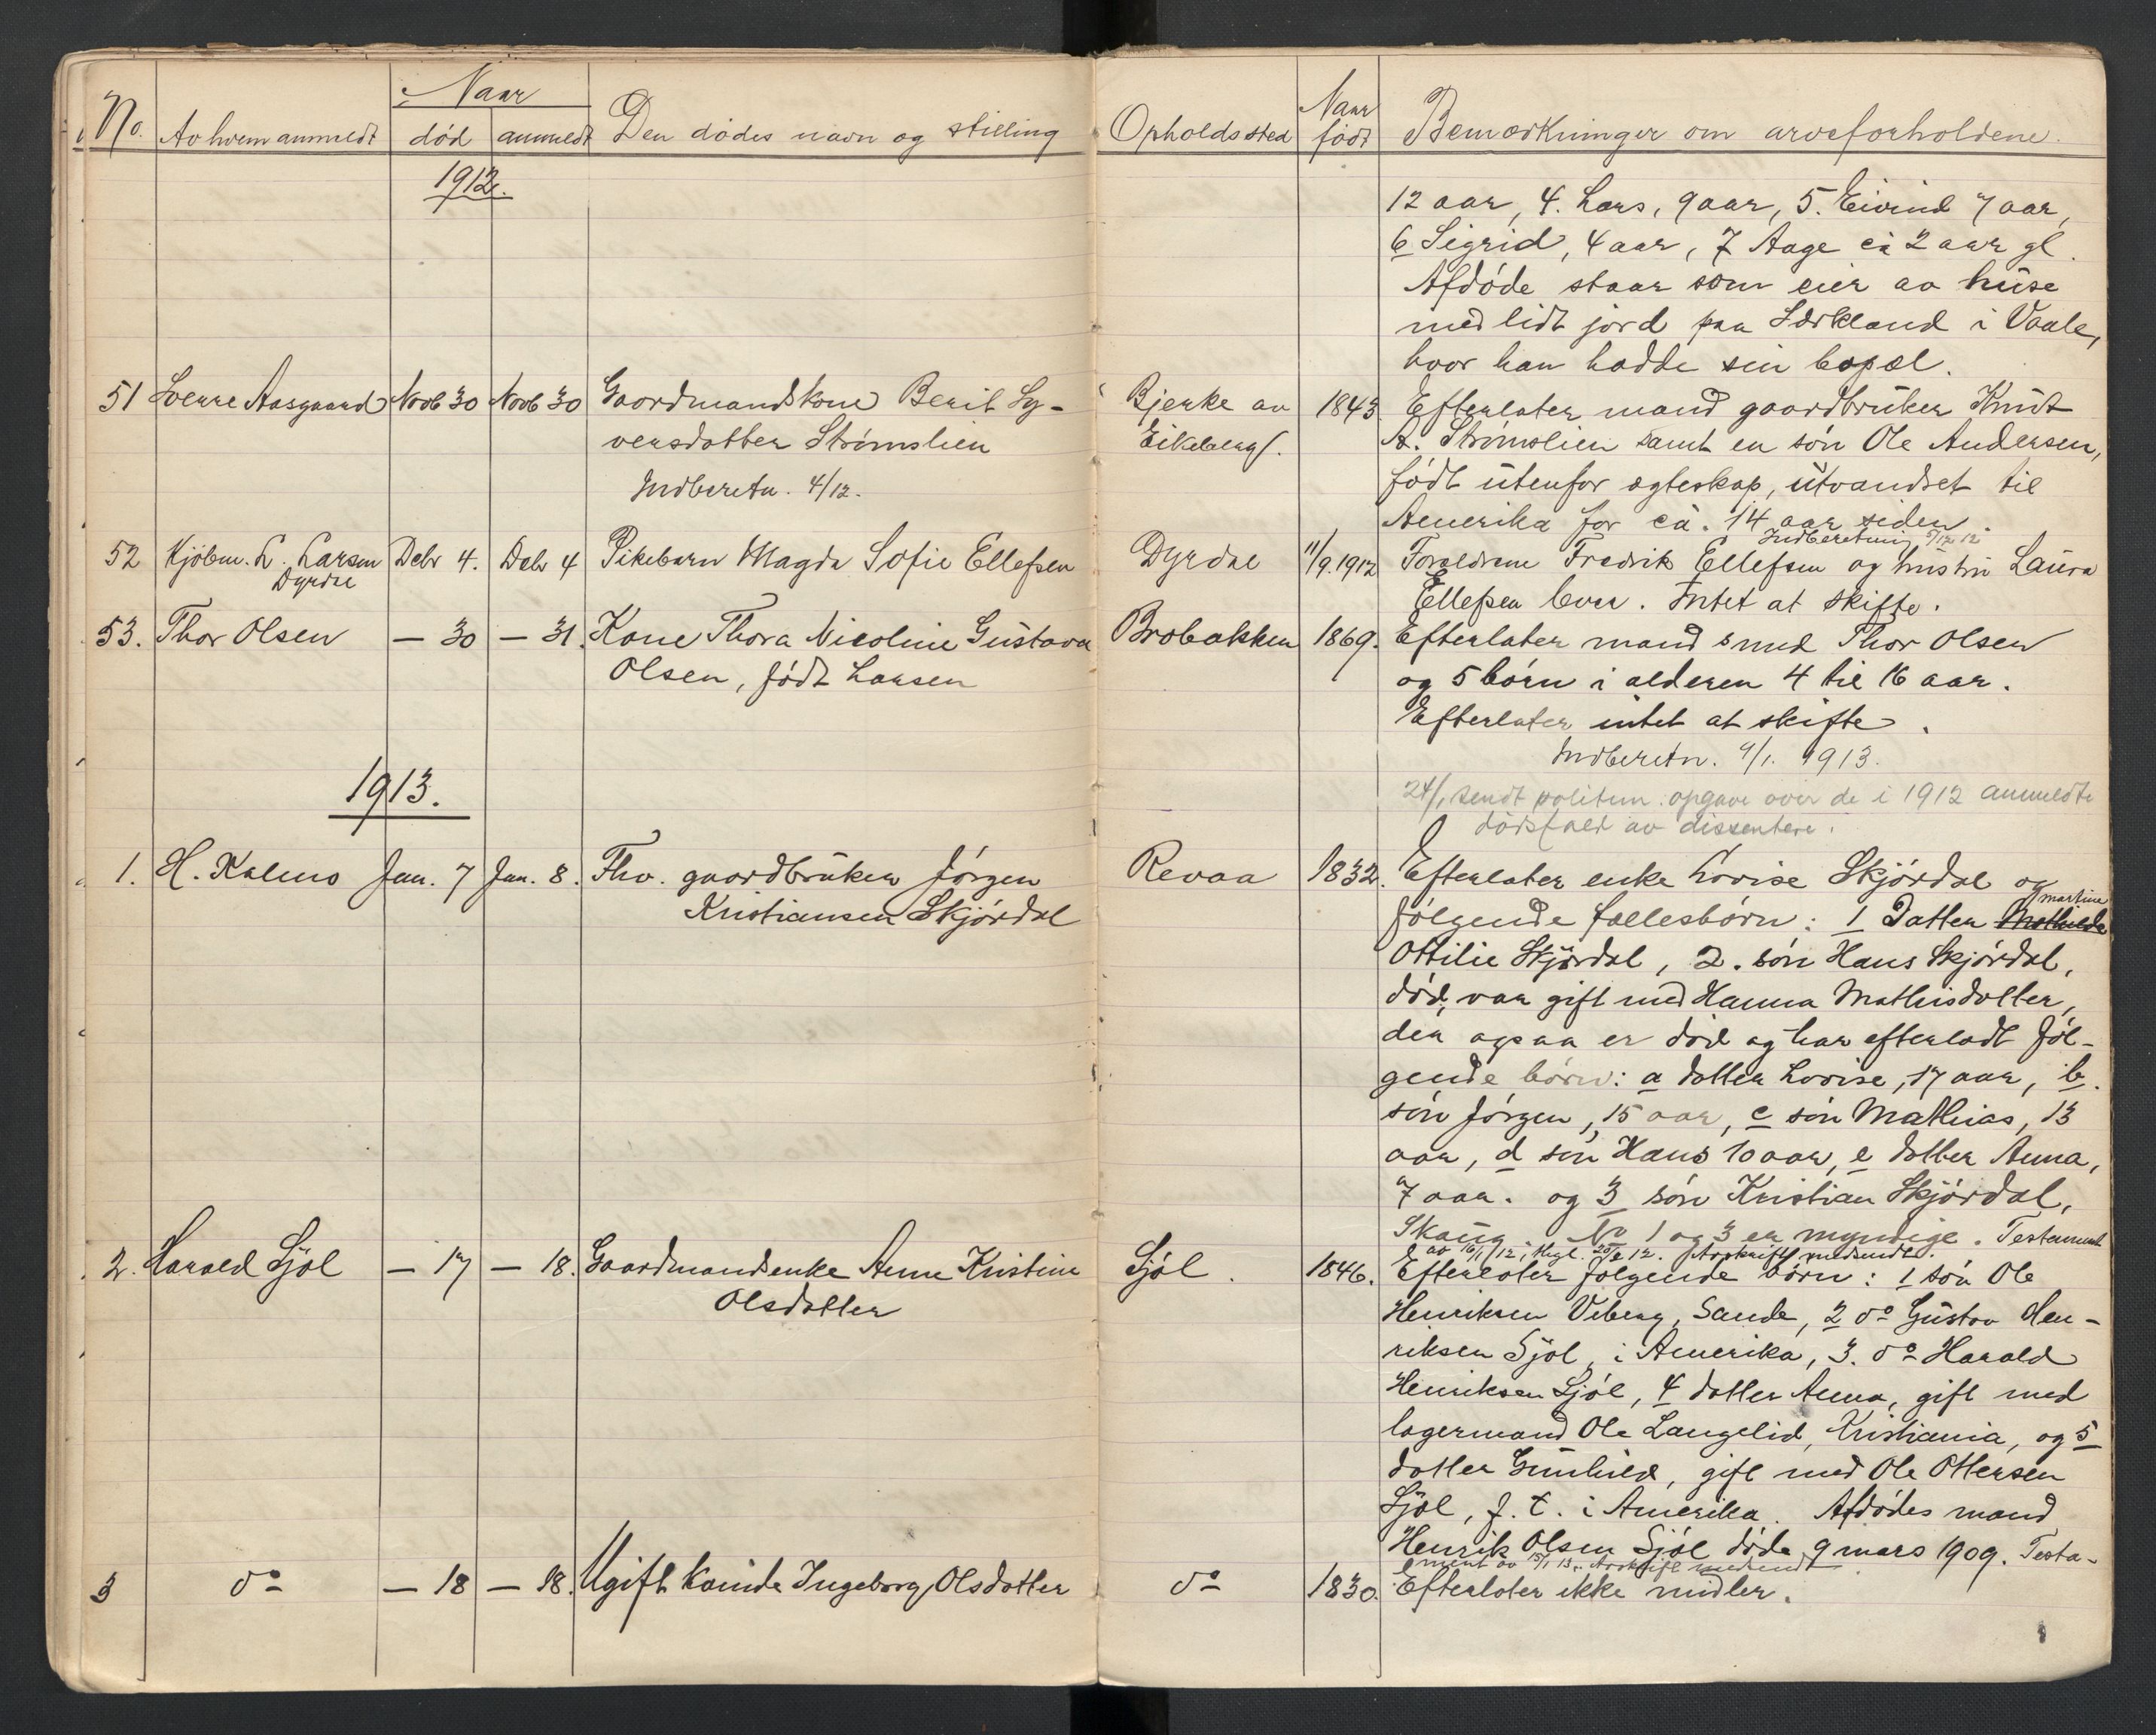 No. Av hvem anmeldt Naar død anmeldt Den dødes navn og stilling Opholdssted Naar født Bemærkninger om arveforholdene.
1912.
12 aar, 4. Lars, 9 aar, 5. Eivind 7 aar,
6 Sigrid, 4 aar, 7 Aage ca 2 aar gl.
Afdøde staar som eier av huse
med lidt jord paa Lørkland i Vaale,
hvor han hadde sin bopæl.
51 Sverre Aasgaard Novb 30 Novb 30 Gaardmandskone Berit Sy-
versdatter Strømslien
Indberetn. 4/12.
Bjerke av
Eikeberg
1843. Efterlater mand gaardbruker Knut
A. Strømslien samt en søn Ole Andersen,
født utenfor egteskap, utvandret til
Amerika for ca. 14 aar siden.
Indberetning 5/12 12
52 Kjøbm. L. Larsen
Dyrdal
Debr 4. Debr 4 Pikebarn Magda Sofie Ellefsen Dyrdal 11/9.1912 Forældrene Fredrik Ellefsen og hustru Laura
Ellefsen lever. Intet at skifte.
53. Thor Olsen — 30 — 31. Kone Thora Nicoline Gustava
Olsen, født Larsen
Brobakken 1869. Efterlater mand smed Thor Olsen
og 5 børn i alderen 4 til 16 aar.
Efterlater intet at skifte.
Indberetn. 4/1. 1913.
24/1 sendt politim. opgave over de i 1912 anmeldte
dødsfald av dissentere.
1913.
1. H. Kalmo Jan. 7 Jan. 8. Fhv. gaardbruker Jørgen
Kristiansen Skjørdal
Revaa 1832. Efterlater enke Lovise Skjørdal og
martine
følgende fællesbørn: 1 Datter Mathilde
Ottilie Skjørdal, 2. søn Hans Skjørdal,
død, var gift med Hanna Mathisdatter,
der ogsaa er død og har efterladt føl-
gende børn: a datter Lovise, 17 aar, b.
søn Jørgen, 15 aar, c søn Mathias, 13
aar, d søn Hans 10 aar, e datter Anna,
7 aar. og 3 søn Kristian Skjørdal,
Skaug. No 1 og 3 er myndige. Testament
av 16/1 12, thgl. 20/2 12. Avskrift medsendt.
2. Harald Sjøl — 17 — 18. Gaardmandsenke Anne Kristine
Olsdatter
Sjøl. 1846. Efterlater følgende børn: 1 søn Ole
Henriksen Veberg, Sande, 2 do Gustav Hen-
riksen Sjøl, i Amerika, 3. do Harald
Henriksen Sjøl, 4 datter Anna, gift med
lagermand Ole Langelid, Kristiania, og 5
datter Gunhild, gift med Ole Ottersen
Sjøl, f. t. i Amerika. Afdødes mand
Henrik Olsen Sjøl døde 9 mars 1909. Testa-
ment av 15/1 13. Avskrift medsendt.
3 do — 18 — 18. Ugift kvinde Ingeborg Olsdatter do 1830. Efterlater ikke midler.